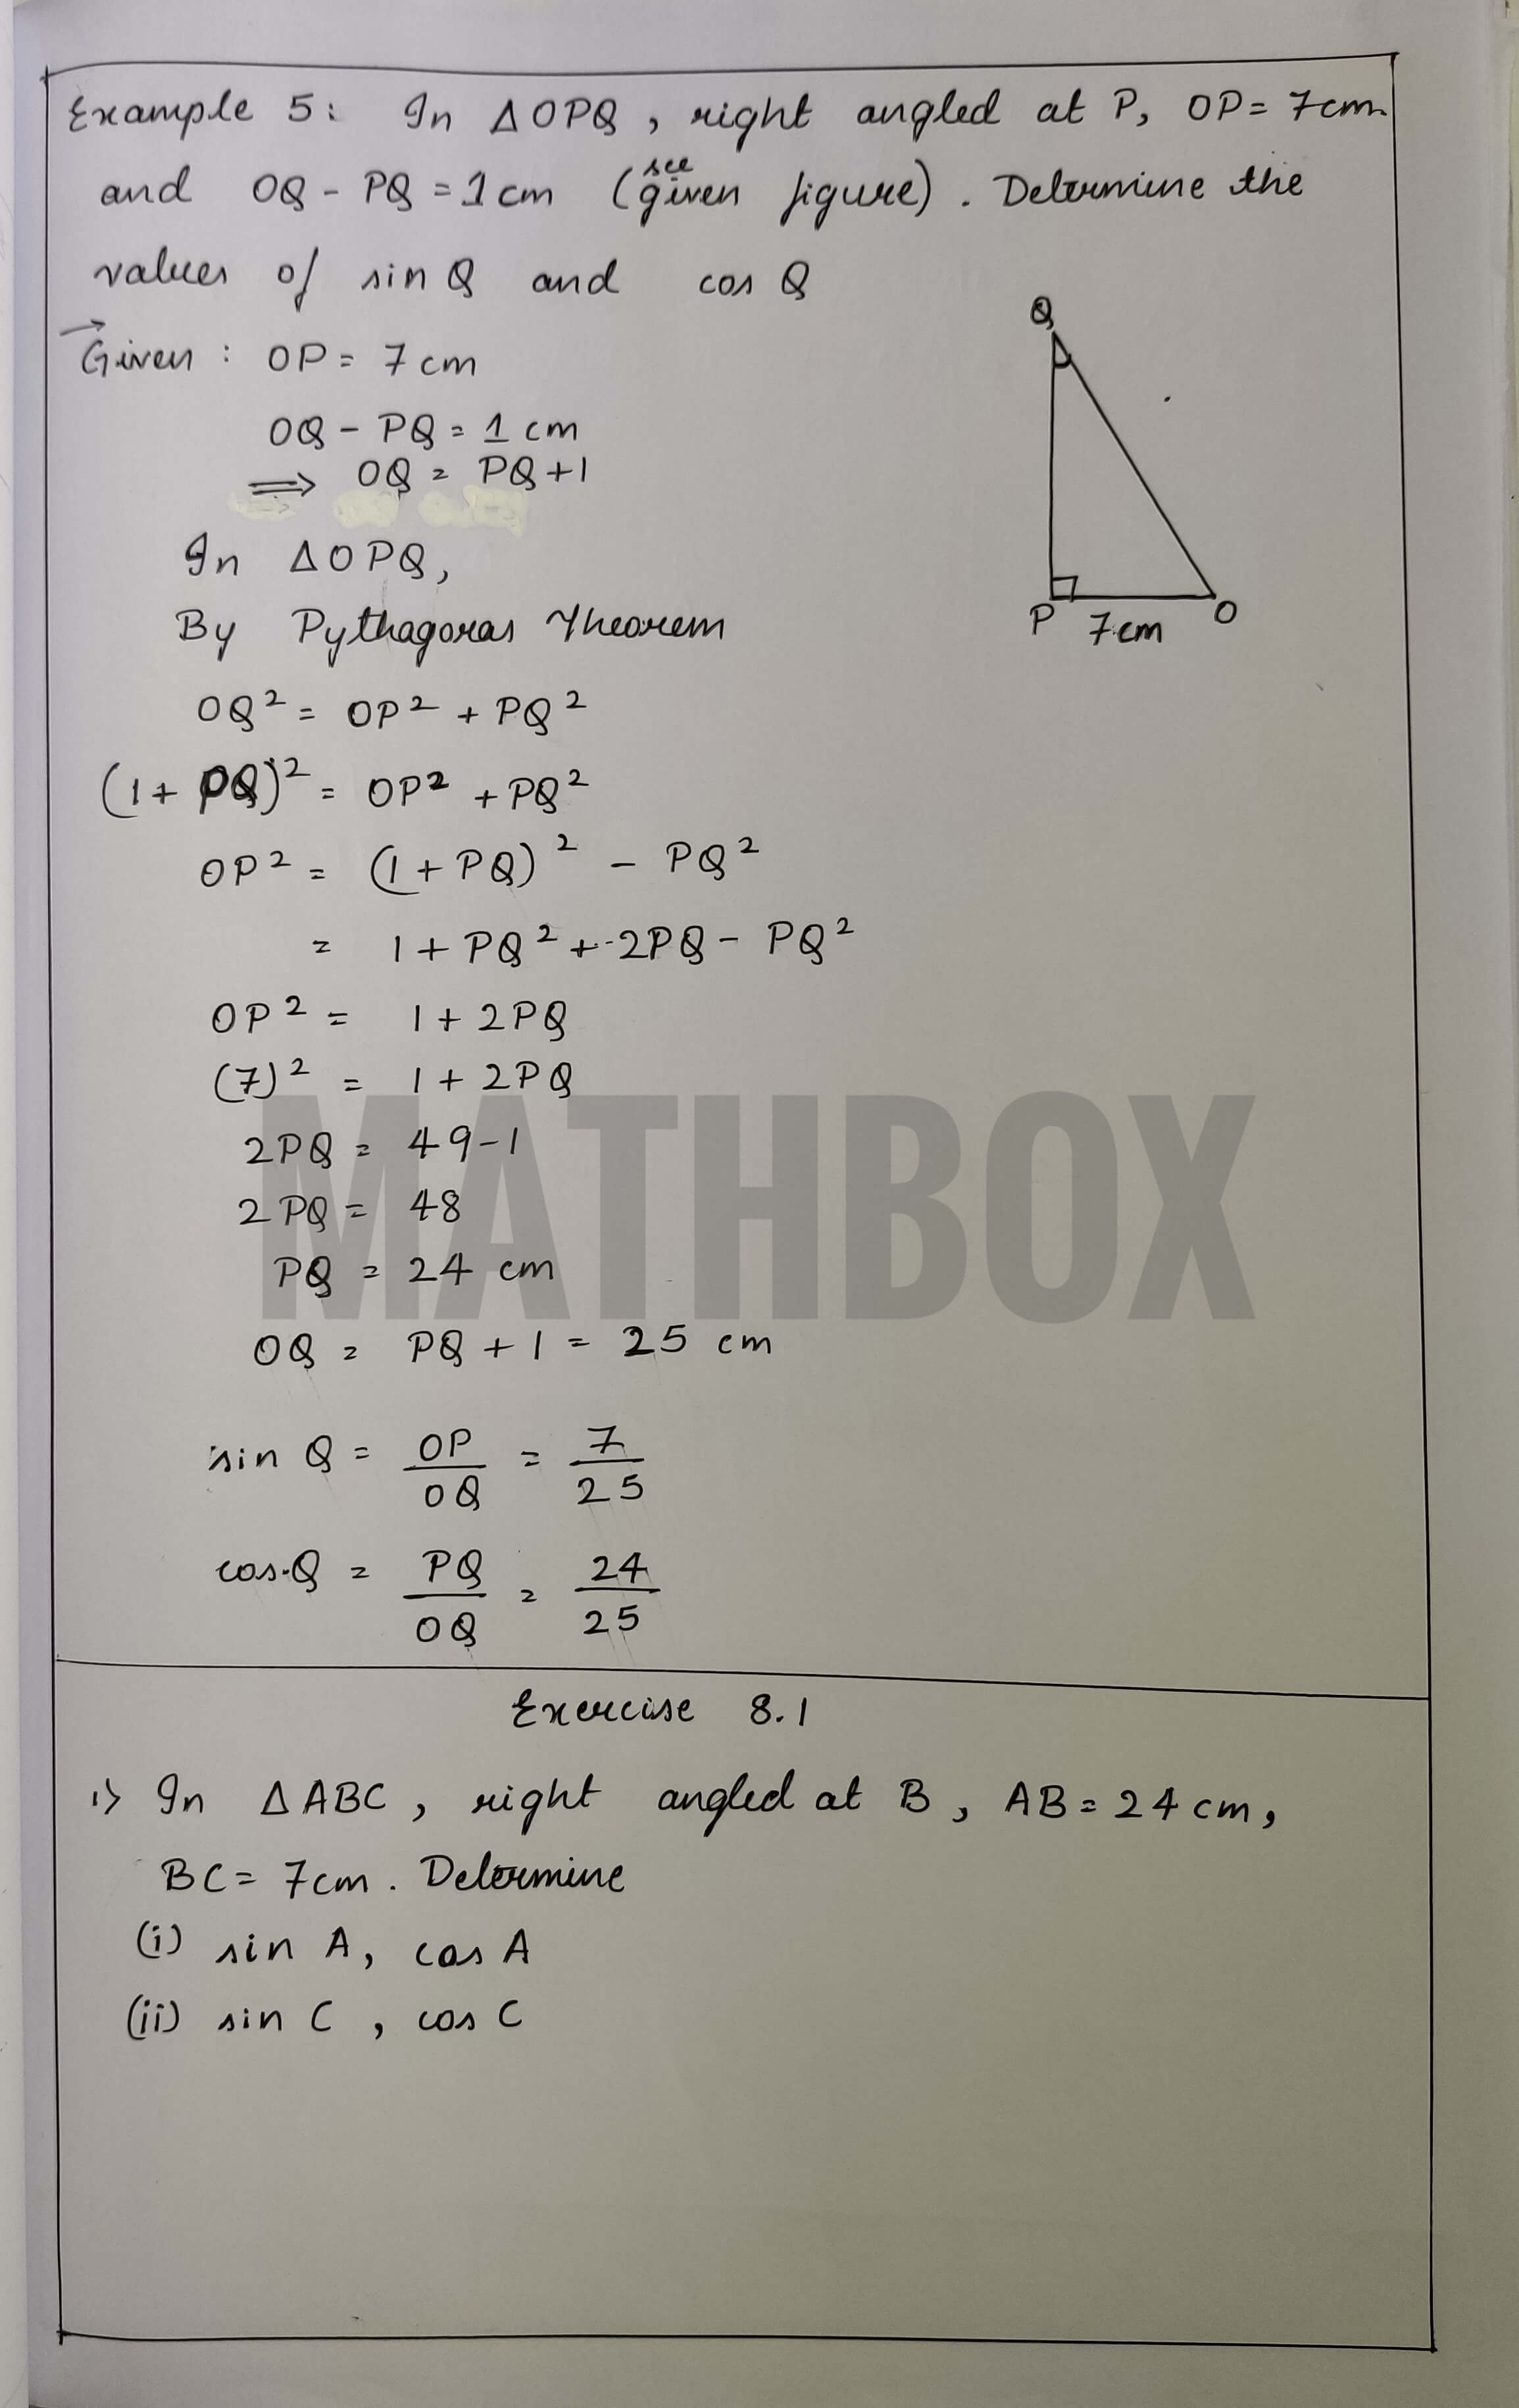 Example 5: In △OPQ, right angled at P, OP = 7cm
and OQ - PQ = 1cm (see given figure). Determine the
values of sin Q and cos Q
→
Given : OP = 7 cm
OQ - PQ = 1 cm
⟹ OQ = PQ + 1
In △OPQ,
By Pythagoras Theorem
OQ² = OP² + PQ²
(1 + PQ)² = OP² + PQ²
OP² = (1 + PQ)² - PQ²
= 1 + PQ² + 2PQ - PQ²
OP² = 1 + 2PQ
(7)² = 1 + 2PQ
2PQ = 49 - 1
2PQ = 48
PQ = 24 cm
OQ = PQ + 1 = 25 cm
sin Q = OP/OQ = 7/25
cos Q = PQ/OQ = 24/25
Q
P 7cm O
MATHBOX
Exercise 8.1
1> In △ABC, right angled at B, AB = 24 cm,
BC = 7cm. Determine
(i) sin A, cos A
(ii) sin C, cos C